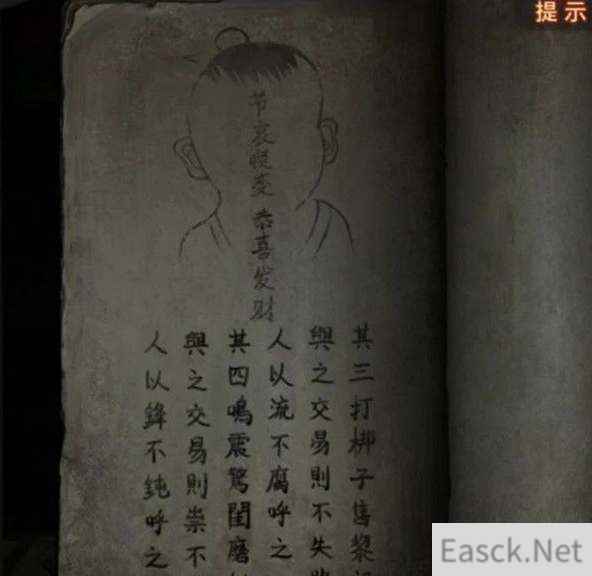 提示
节哀順变恭喜发财
其三打梆子售黎
與之交易則不失
人以流不腐呼之
其四鳴震驚閨磨
與之交易則祟不
人以鋒不鈍呼之
Easck.Net